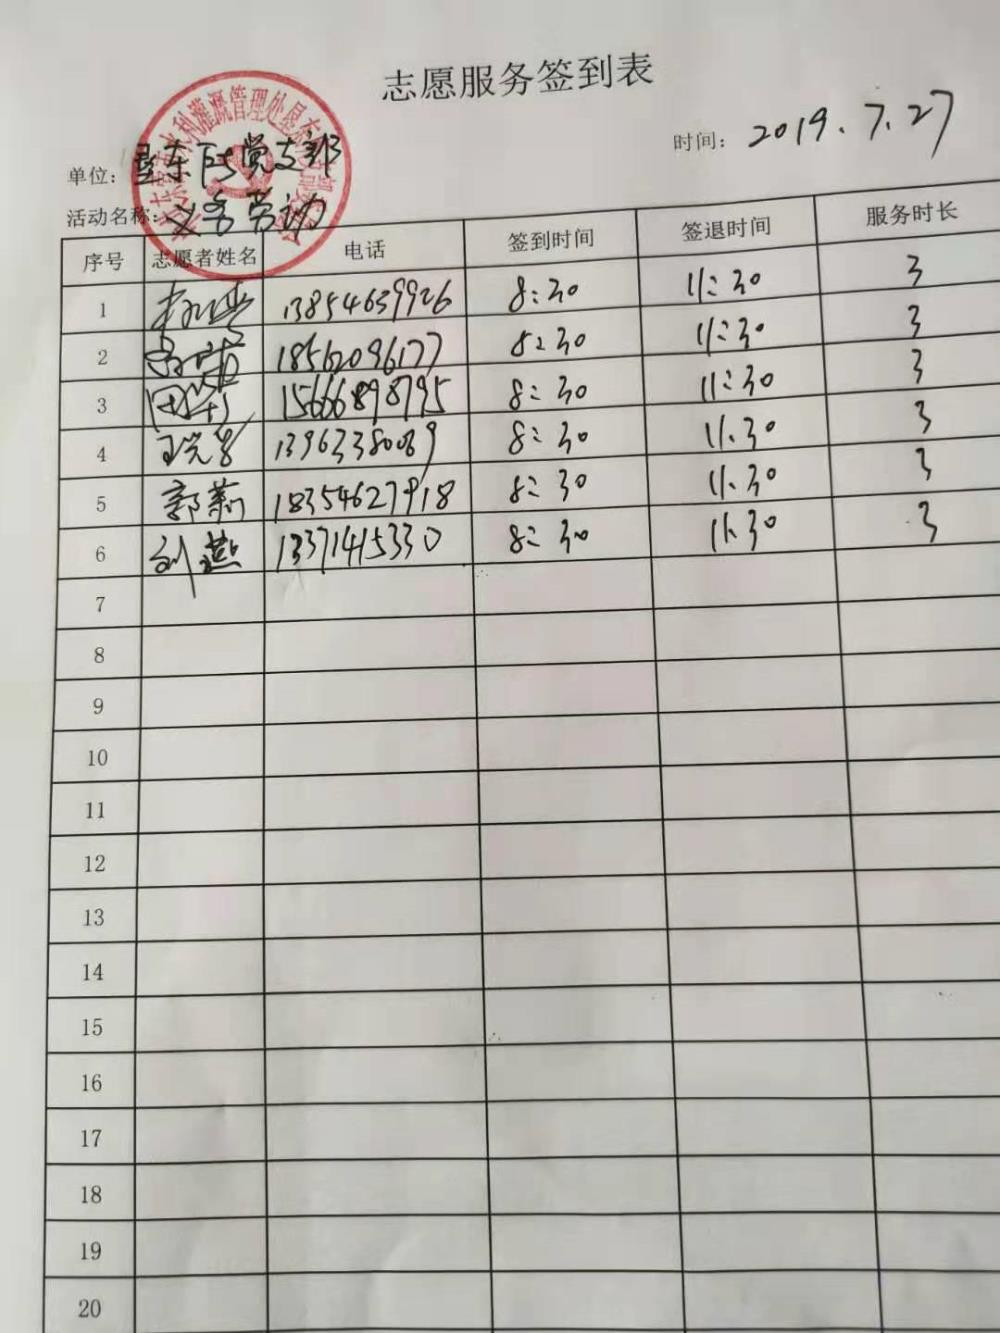 志愿服务签到表
时间: 2019.7.27
单位: 垦东所党支部
活动名称: 义务劳动
序号 志愿者姓名 电话 签到时间 签退时间 服务时长
1 13854639926 8:30 11:30 3
2 18562096177 8:30 11:30 3
3 15666898795 8:30 11:30 3
4 13963380089 8:30 11:30 3
5 郭莉 18354627918 8:30 11:30 3
6 刘燕 13371415330 8:30 11:30 3
7
8
9
10
11
12
13
14
15
16
17
18
19
20